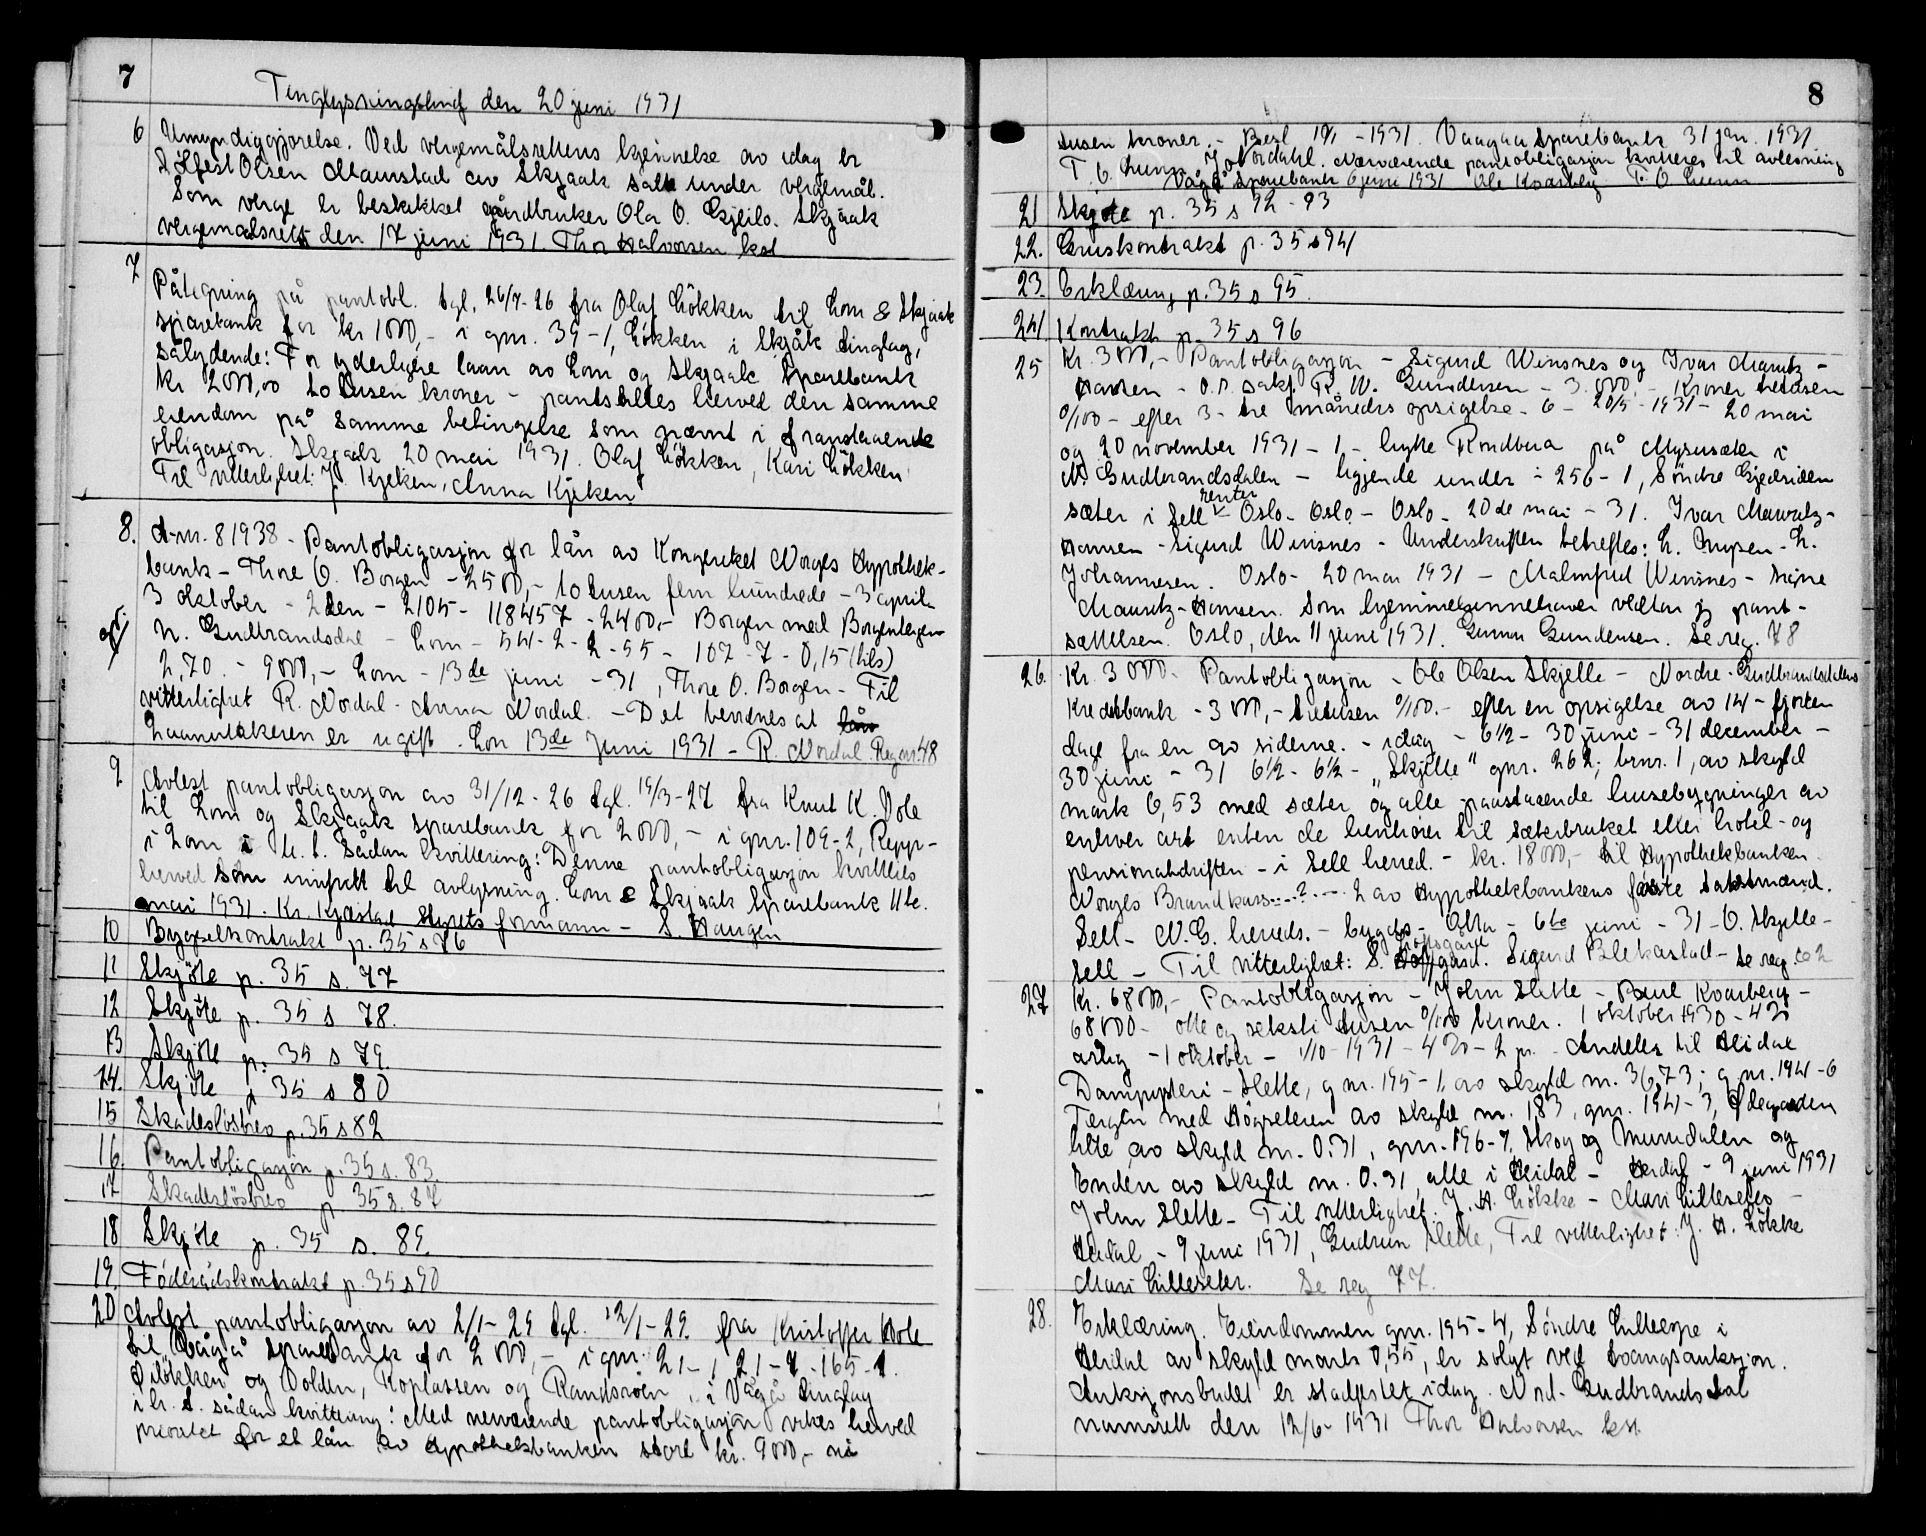 7
Tinglysningsbrief den 20 juni 1931
6 Umyndiggjörelse. Ved vergemålsrettens kjennelse av idag er
Olsen Maurstad av Skjaak satt under vergemål.
Som verge er beskikket gårdbruker Ola O. Skjåk
vergemålsrett den 17 juni 1931 Thor Halvorsen kst
7
Påtegning på pantobl. tgl. 26/7-26 fra Olaf Lökken til Lom & Skjaak
sparebank for kr 1000,- i gnr. 39-1, Lökken i Skjåk tinglag,
sålydende: For yderligere laan av Lom og Skjaak Sparebank
kr 2000,00 to tusen kroner - pantstilles herved den samme
eiendom på samme betingelse som nevnt i franstaaende
obligasjon. Skjaak 20 mai 1931. Olaf Lökken, Kari Lökken
Til vitterlighet: J. Kjæken, Anna Kjæken
8. A-nr. 81938 - Pantobligasjon for lån av Kongeriket Norges Hypothek-
bank - Thore O. Borgen - 2500,- to tusen fem hundrede - 3 april
3 oktober - 2den - 2105 - 118457 - 2400,- Borgen med Borgenhagen
N. Gudbrandsdal - Lom - 54-2-2-55 - 102-7-0,15 (hls)
2,70. - 9000,- Lom - 13de juni - 31, Thore O. Borgen - Til
vitterlighet R. Nordal - Anna Nordal. - Det bevidnes at lån
Laanetakeren er ugift. Lom 13de Juni 1931 - R. Nordal. Reg. nr. 48
9 Avlest pantobligasjon av 31/12-26 tgl. 14/3-27 fra Knut K. Dole
til Lom og Skjaak sparebank for 2000,- i gnr. 102-2, Repp-
i Lom i h. t. sådan kvittering: Denne pantobligasjon kvitteres
herved som innfridd til avlysning. Lom & Skjaak Sparebank 11te
mai 1931. Kr. Kjæstad styrets formann - S. Haugen
10 Bygselkontrakt p. 35 s 76
11 Skjöte p. 35 s. 77
12 Skjöte p. 35 s 78.
13 Skjöte p. 35 s 79.
14. Skjöte p 35 s 80
15 Skadeslösbrev p. 35 s 82
16. Pantobligasjon p. 35 s. 83
17 Skadeslösbrev p. 35 s. 87
18 Skjöte p. 35 s. 89.
19. Föderådskontrakt p. 35 s 90
20 Avlest pantobligasjon av 2/1-29 tgl. 12/1-29. fra Kristoffer Hole
til Vågå Sparebank for 2000,- i gnr. 21-1, 21-7-165-1.
Öilökken og Volden, Koplassen og Randsroen i Vågå tinglag
i h. t. sådan kvittring: Med nerværende pantobligasjon vikes herved
prioritet for et lån av Hypothekbanken stort kr. 9000,- ni
8
tusen kroner. - Besl 19/1 - 1931. Vaagaa Sparebank 31 jan. 1931
T. O. Lunn J. Nordahl. Nærværende pantobligasjon kvitteres til avlesning
Vågå Sparebank 6 juni 1931 Ole Kvarberg T. O. Lunn
21 Skjöte p. 35 s 92-93
22. Gruskontrakt p. 35 s 94
23. Erklæring p. 35 s 95.
24 Kontrakt p. 35 s 96
25 Kr. 3000,- Pantobligasjon - Sigurd Winsnes og Ivar Mauritz-
Hansen - O.r. sakf. R. W. Gundersen - 3.000,- Kroner tretusen
0/100 - efter 3 - tre måneders opsigelse - 6 - 20/5 - 1931 - 20 mai
og 20 november 1931 - 1 - hytte Rondbua på Mysusæter i
N. Gudbrandsdalen - liggende under - 256-1, Söndre Gjedsiden
sæter i Sell renter - Oslo - Oslo - Oslo - 20de mai - 31. Ivar Mauritz-
Hansen - Sigurd Winsnes - Underskriften bekreftes: L. Grupen - L.
Johannesen. Oslo - 20 mai 1931 - Malmfrid Winsnes - Signe
Mauritz-Hansen. Som hjemmelsinnehaver vedtar jeg pant-
settelsen. Oslo, den 11 juni 1931. Gunnar Gundersen. Se reg. 78
26. Kr. 3000 - Pantobligasjon - Ole Olsen Skjelle - Nordre-Gudbrandsdalens
Kredittbank - 3000,- tretusen 0/100. - efter en opsigelse av 14 - fjorten
dage fra en av siderne. - idag - 6 1/2 - 30 juni - 31 december -
30 juni - 31 6 1/2 - 6 1/2 - "Skjelle" gnr. 262, brnr. 1, av skyld
mark 6,53 med sæter og alle paastaaende husebygninger av
enhver art enten de henhörer til sæterbruket eller hotel- og
pensionatdriften - i Sell herred. - kr. 18000,- til Hypothekbanken
Norges Brandkass...?... 2 av Hypothekbankens faste takstmænd.
Sell - N. G. herreds. - bygds - Otta - 6te juni - 31 - O. Skjelle -
Sell - Til vitterlighet: S. Sigurd Blekastad - se reg. 62
27 Kr. 68000,- Pantobligasjon - John Slette - Paul Kvarberg -
68000 - otte og seksti tusen 0/100 kroner. 1 oktober 1930 - 4 20
årlig - 1 oktober - 1/10 - 1931 - 4 20 - 2 pr. - Andeler til Heidal
Dampysteri - Slette, g nr. 195-1, av skyld m. 36,73; g nr. 194-6
Teigen med Högseteren av skyld m. 1,83, gnr. 194-3, Ödegaarden
lille av skyld m. 0.31, gnr. 196-7, Skog og Murudalen og
Enden av skyld m. 0.31, alle i Heidal - Heidal - 9 juni 1931
John Slette - Til vitterlighet. J. H. Lökke - Mari Lilleseter -
Heidal - 9 juni 1931, Gudrun Slette, Til vitterlighet: J. H. Lökke
Mari Lilleseter. Se reg 77.
28. Erklæring. Eiendommen gnr. 195-4, Söndre Lilleope i
Heidal av skyld mark 0,55, er solgt ved tvangsauksjon.
Auksjonsbudet er stadfestet idag. Nord-Gudbrandsdal
namsrett den 12/6-1931 Thor Halvorsen kst.